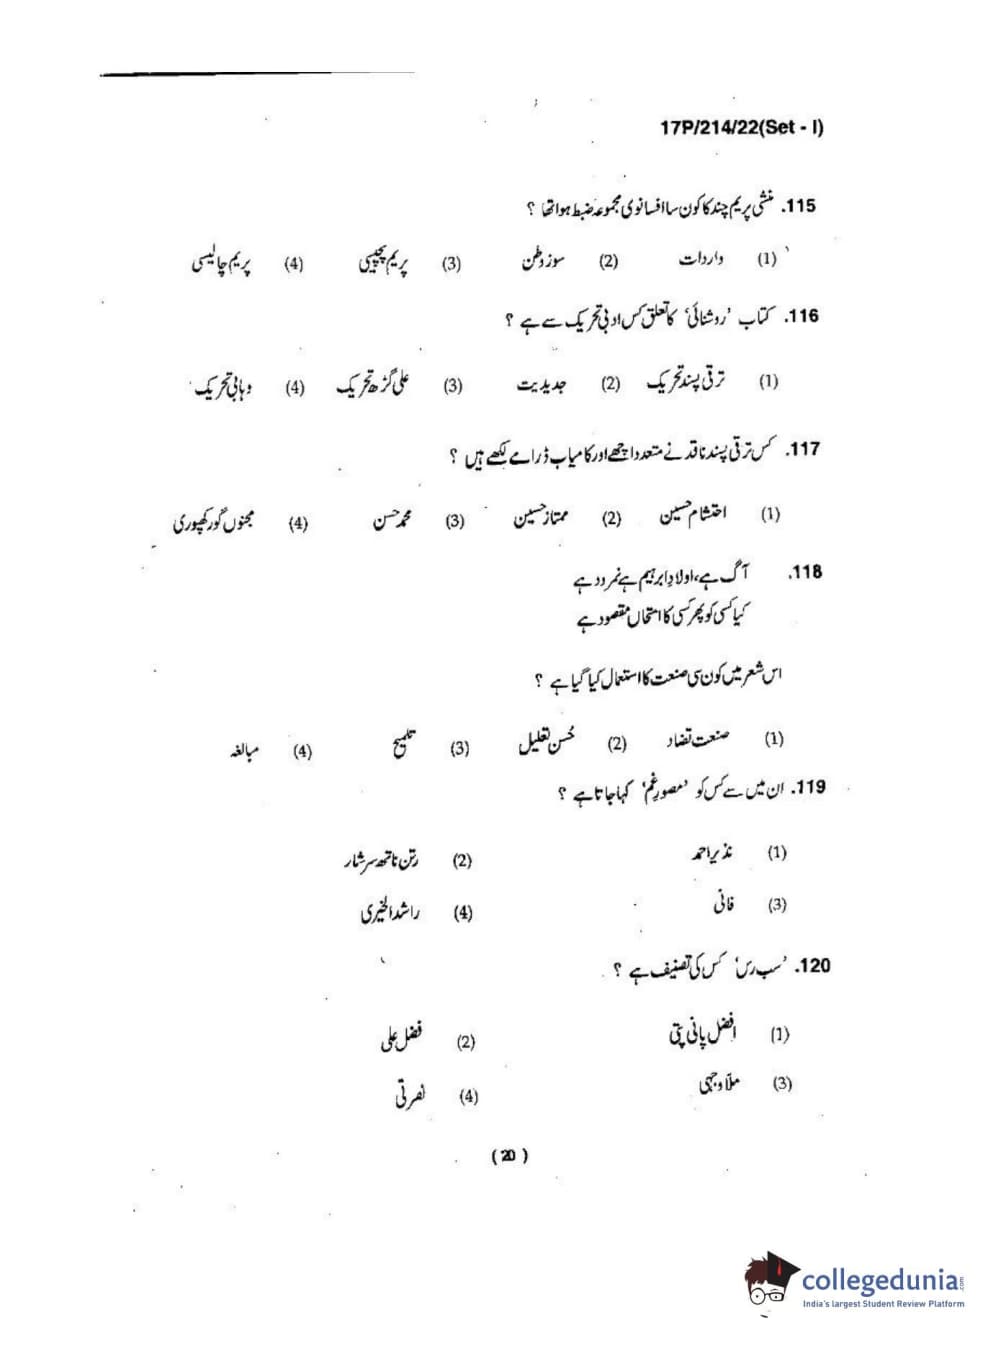 17P/214/22(Set - I)
115. منشی پریم چند کا کون سا افسانوی مجموعہ ضبط ہوا تھا ؟
(1) واردات (2) سوز وطن (3) پریم پچیسی (4) پریم چالیسی
116. کتاب ’روشنائی‘ کا تعلق کس ادبی تحریک سے ہے ؟
(1) ترقی پسند تحریک (2) جدیدیت (3) علی گڑھ تحریک (4) وہابی تحریک
117. کس ترقی پسند ناقد نے متعدد اچھے اور کامیاب ڈرامے لکھے ہیں ؟
(1) احتشام حسین (2) ممتاز حسین (3) محمد حسن (4) مجنوں گورکھپوری
118. آگ ہے، اولادِ ابرہیم ہے نمرود ہے
کیا کسی کو پھر کسی کا امتحاں مقصود ہے
اس شعر میں کون سی صنعت کا استعمال کیا گیا ہے ؟
(1) صنعت تضاد (2) حُسن تعلیل (3) تلمیح (4) مبالغہ
119. ان میں سے کس کو ’مصورِ غم‘ کہا جاتا ہے ؟
(1) نذیر احمد (2) رتن ناتھ سرشار
(3) فانی (4) راشد الخیری
120. ’سب رس‘ کس کی تصنیف ہے ؟
(1) افضل پانی پتی (2) فضل علی
(3) ملّا وجہی (4) نصرتی
( 20 )
collegedunia.com
India's largest Student Review Platform